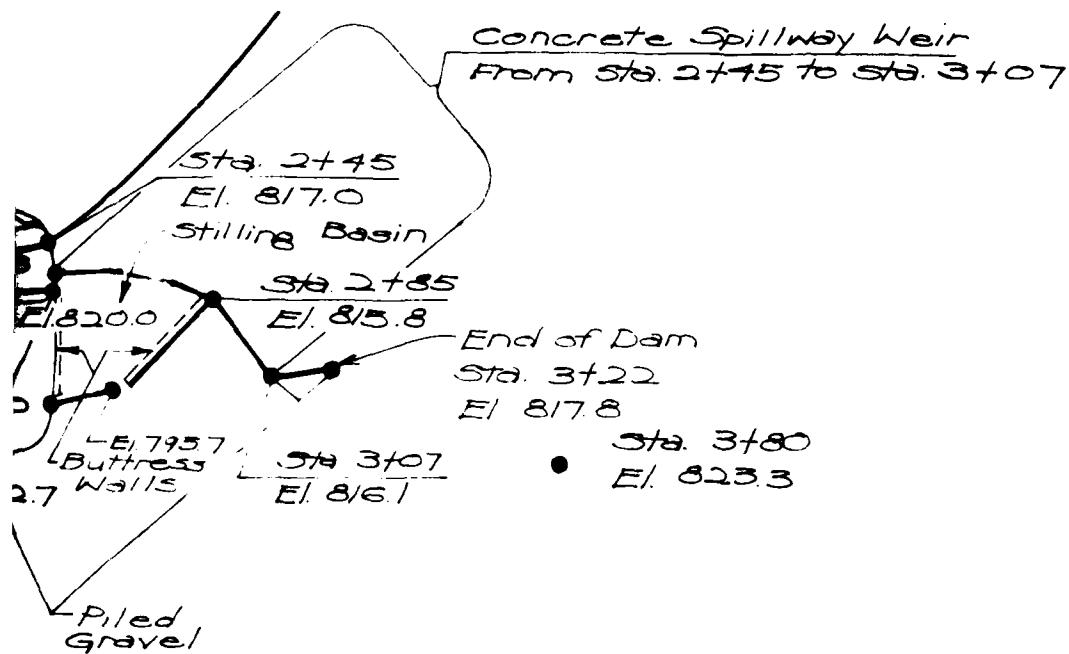 Concrete Spillway Weir
From Sta. 2+45 to Sta. 3+07
Sta. 2+45
El. 817.0
Stilling Basin
Sta. 2+85
El. 815.8
El.820.0
End of Dam
Sta. 3+22
El 817.8
Sta. 3+80
El. 823.3
El.795.7
Buttress
Walls
Sta 3+07
El. 816.1
2.7
Piled
Gravel